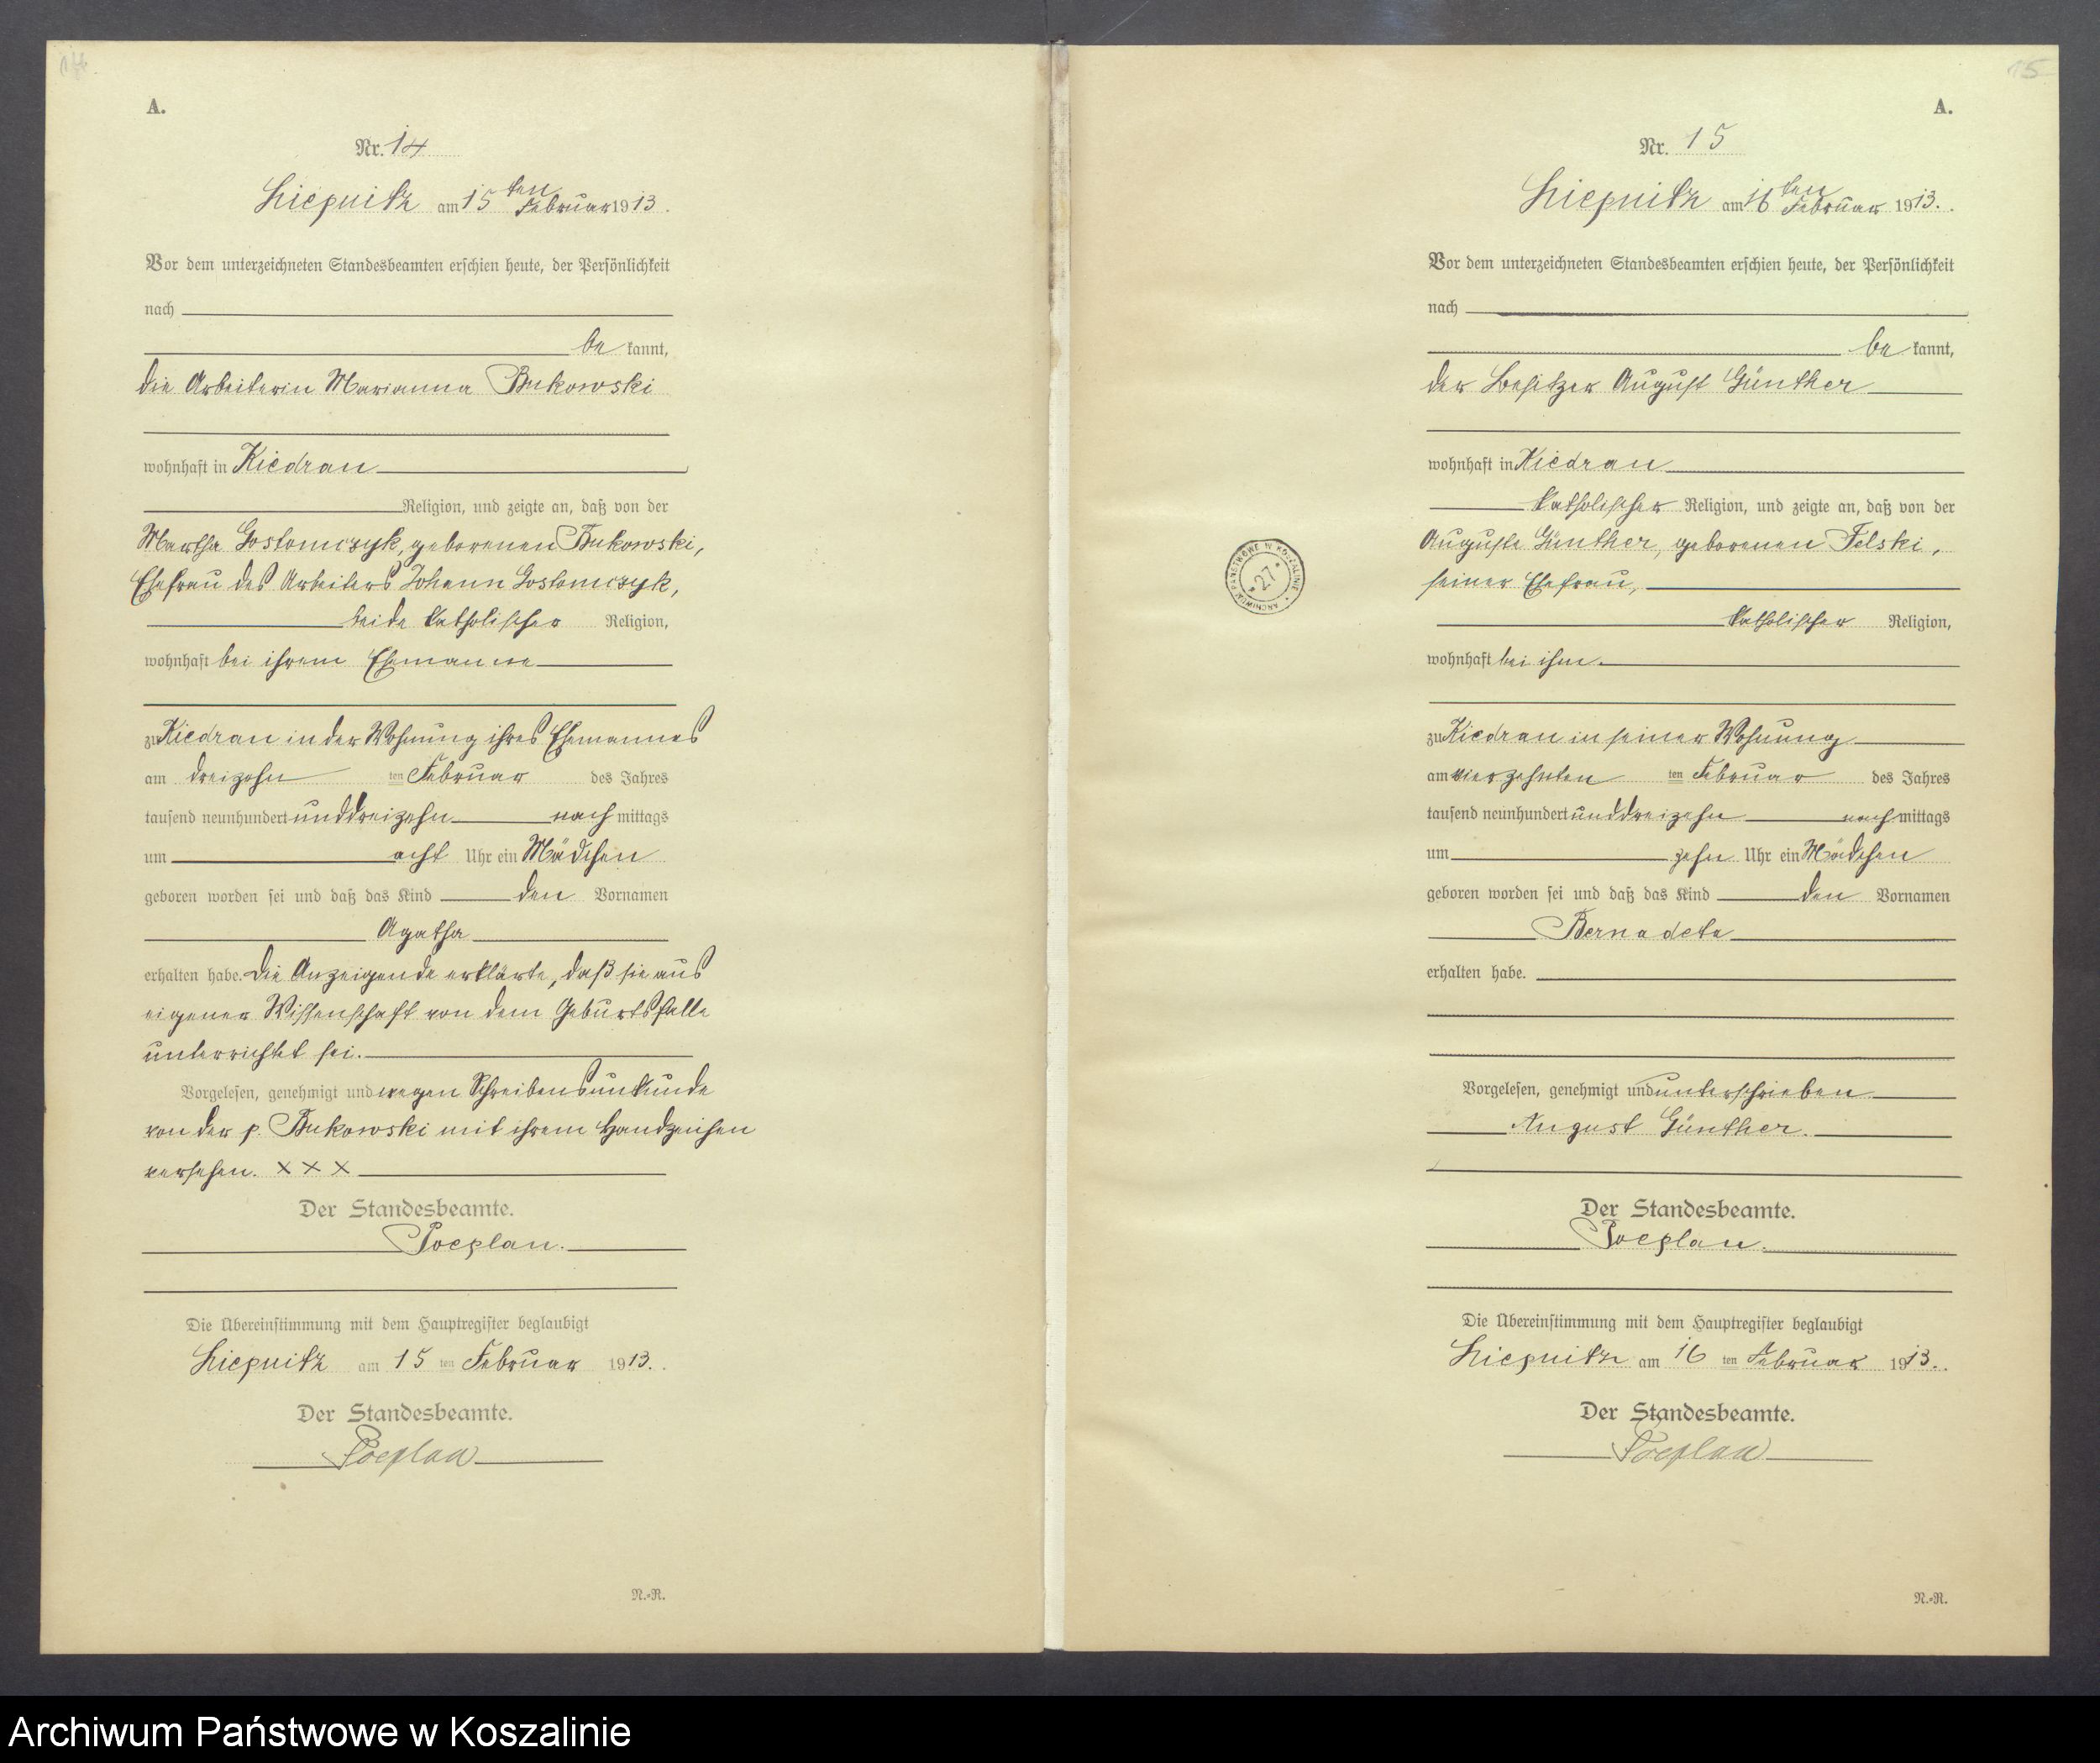 14
A.
Nr. 14
Liepnitz am 15ten Februar 1913.
Vor dem unterzeichneten Standesbeamten erschien heute, der Persönlichkeit
nach
be kannt,
die Arbeiterin Marianna Bukowski
wohnhaft in Kiedrau
Religion, und zeigte an, daß von der
Martha Gostomczyk, geborenen Bukowski,
Ehefrau des Arbeiters Johann Gostomczyk,
beide katholischer Religion,
wohnhaft bei ihrem Ehemanne
zu Kiedrau in der Wohnung ihres Ehemannes
am dreizehn ten Februar des Jahres
tausend neunhundert unddreizehn nach mittags
um acht Uhr ein Mädchen
geboren worden sei und daß das Kind den Vornamen
Agatha
erhalten habe. Die Anzeigende erklärte, daß sie aus
eigener Wissenschaft von dem Geburtsfalle
unterrichtet sei.
Vorgelesen, genehmigt und wegen Schreibensunkunde
von der p. Bukowski mit ihrem Handzeichen
versehen. x x x
Der Standesbeamte.
Poeplau.
Die Übereinstimmung mit dem Hauptregister beglaubigt
Liepnitz am 15 ten Februar 1913.
Der Standesbeamte.
Poeplau
N.-R.
15
A.
Nr. 15
Liepnitz am 16ten Februar 1913.
Vor dem unterzeichneten Standesbeamten erschien heute, der Persönlichkeit
nach
be kannt,
der Besitzer August Günther
wohnhaft in Kiedrau
katholischer Religion, und zeigte an, daß von der
Auguste Günther, geborenen Felski,
seiner Ehefrau,
katholischer Religion,
wohnhaft bei ihm
zu Kiedrau in seiner Wohnung
am vierzehnten ten Februar des Jahres
tausend neunhundert unddreizehn nach mittags
um zehn Uhr ein Mädchen
geboren worden sei und daß das Kind den Vornamen
Bernadeta
erhalten habe.
Vorgelesen, genehmigt und unterschrieben
August Günther.
Der Standesbeamte.
Poeplau.
Die Übereinstimmung mit dem Hauptregister beglaubigt
Liepnitz am 16 ten Februar 1913.
Der Standesbeamte.
Poeplau
N.-R.
ARCHIWUM PAŃSTWOWE W KOSZALINIE
*27*
Archiwum Państwowe w Koszalinie